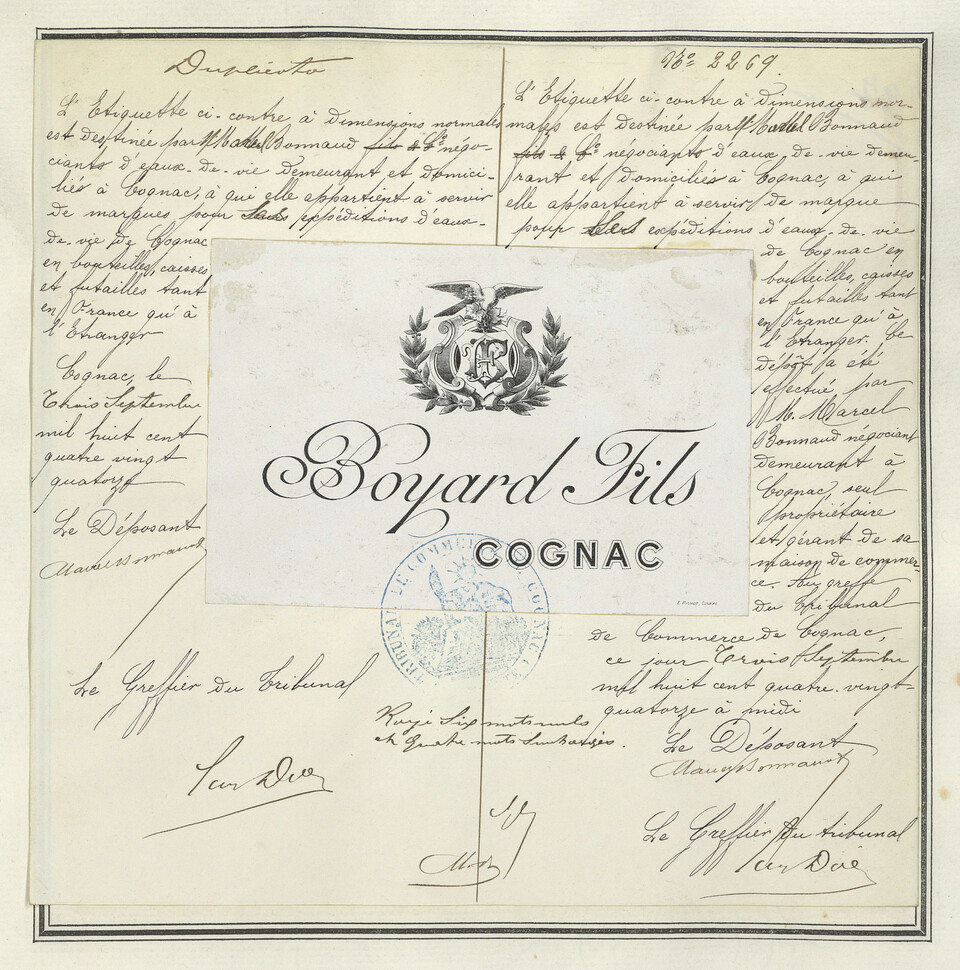 Duplicata
L'Etiquette ci-contre à dimensions normales
est destinée par Mr Marcel Bonnaud fils & Cie négo-
ciants d'eaux-de-vie demeurant et domici-
liés à Cognac, à qui elle appartient à servir
de marques pour ses expéditions d'eaux-
de-vie de Cognac
en bouteilles, caisses
et futailles tant
en France qu'à
l'Etranger
Cognac, le
Trois Septembre
mil huit cent
quatre vingt
quatorze
Le Déposant
Marcel Bonnaud
Le Greffier du Tribunal
No 2269.
L'Etiquette ci-contre à dimensions nor-
males est destinée par Mr Marcel Bonnaud
fils & Cie négociants d'eaux-de-vie demeu-
rant et domiciliés à Cognac, à qui
elle appartient à servir de marque
pour ses expéditions d'eaux-de-vie
de Cognac en
bouteilles, caisses
et futailles tant
en France qu'à
l'Etranger. Ce
dépôt a été
effectué par
M. Marcel
Bonnaud négociant
demeurant à
Cognac, seul
propriétaire
et gérant de sa
maison de commer-
ce. Au greffe
du Tribunal
de Commerce de Cognac,
ce jour Trois Septembre
mil huit cent quatre-vingt-
quatorze à midi
Le Déposant
Marcel Bonnaud
Le Greffier du tribunal
Rayé Six mots nuls
et Quatre mots Surchargés.
Boyard Fils
COGNAC
E. PICHOT, COGNAC
TRIBUNAL DE COMMERCE DE COGNAC